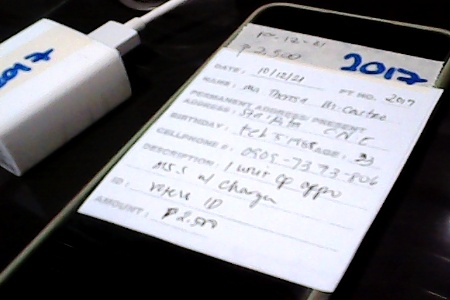 2017
10-12-21
₱2,500
2017
DATE: 10/12/21 PT NO. 2017
NAME: Ma Theresa
PERMANENT ADDRESS/PRESENT
ADDRESS:
BIRTHDAY: Feb 5 AGE:
CELLPHONE #: 0905-7373-806
DESCRIPTION: 1 unit cp oppo
w/ Charger
ID: Voters ID
AMOUNT: ₱2,500